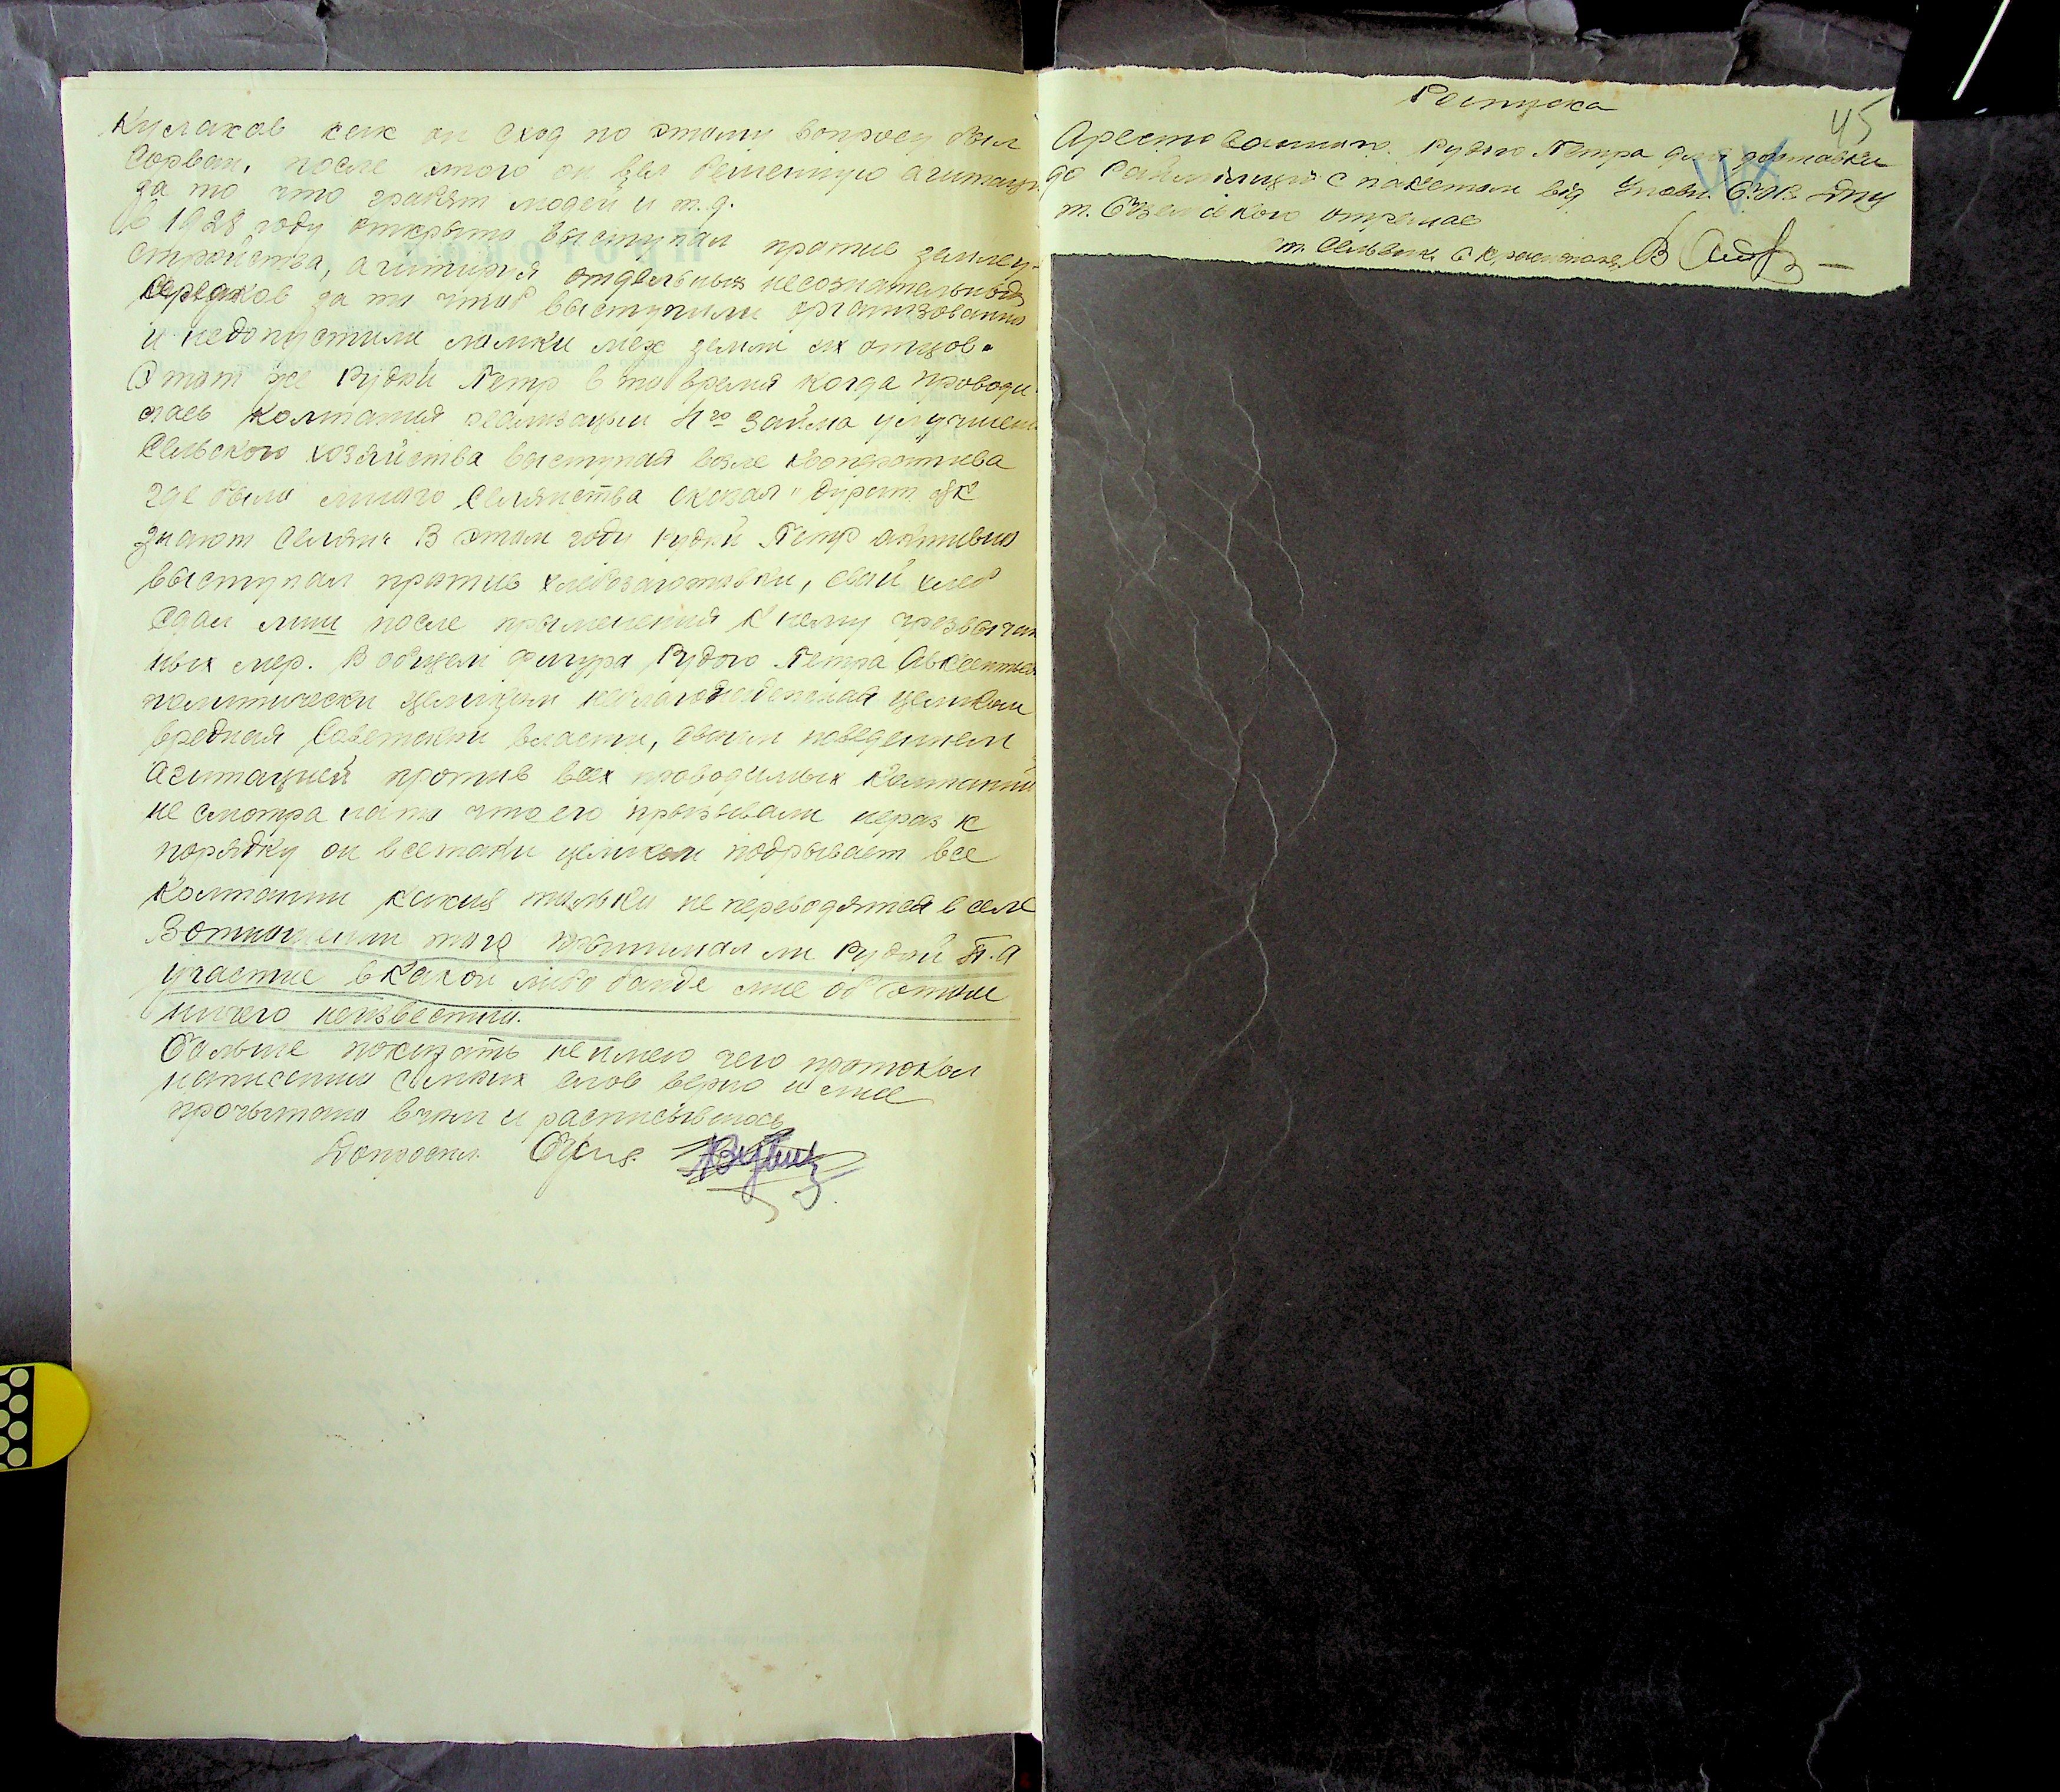 Кулаков как он сход по этому вопросу был
сорван, после этого он вел бешенную агитацию
за то что грабят людей и т.д.
В 1928 году открыто выступал против землеу-
стройства, агитируя отдельных несознательных
за то чтоб выступили организованно
и недопустили ломки меж земли их отцов.
Этот же Рудой Петр в то время когда проводи-
лась Компания реализации займа улучшения
Сельского хозяйства выступая возле Кооператива
где было много Селянства сказал "дурят як
знают Селян" В этом году Рудой Петр активно
выступал против хлебозаготовки, свой хлеб
сдал лиш после применения к нему чрезвычай
ных мер. В общем фигура Рудого Петра Авксентьев
политически неблагонадежная целиком
вредная Советской власти, своим поведением
агитацией против всех проводимых Компаний
не смотря на то что его призывали нераз к
порядку он всетаки целиком подрывает все
Компании какия только не переводятся в селе
В отношении того принимал ли Рудой П.А
участие в какой либо банде мне об этом
ничего неизвестно.
Больше показать неимею чего протокол
написанно с моих слов верно и мне
прочытано в чом и расписываюсь
Допросил
Росписка
45
Арестованного Рудого Петра для доставки
до Райміліції с пакетом від Уповн. ДПУ
т. отримав